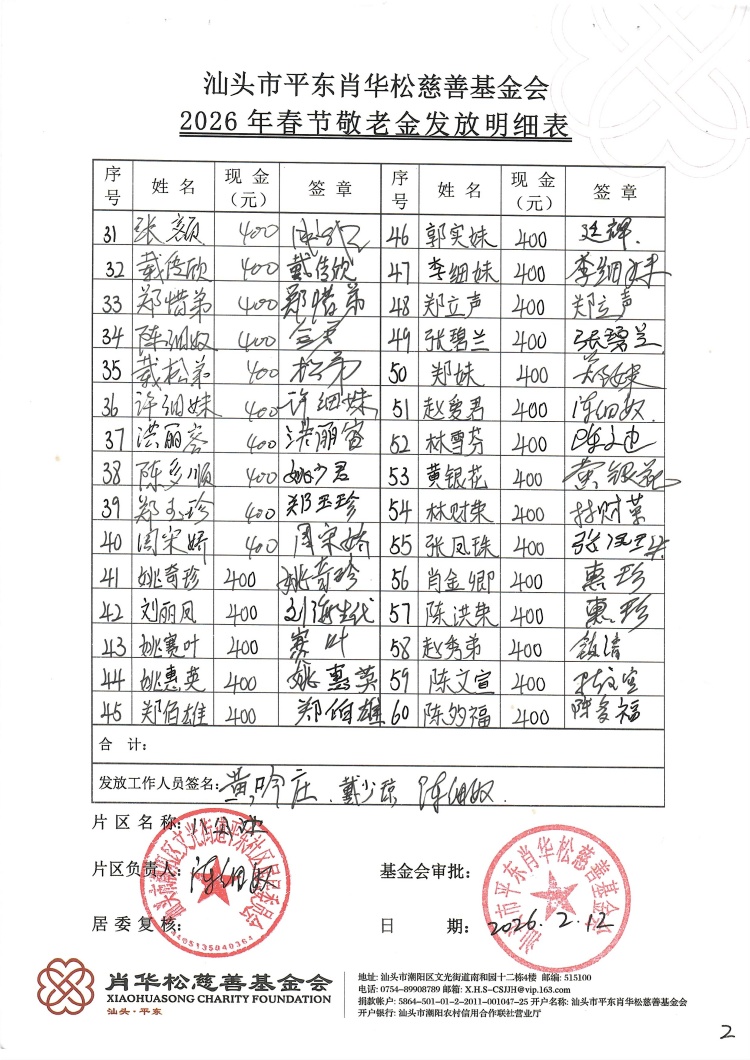 汕头市平东肖华松慈善基金会
2026年春节敬老金发放明细表
序号 姓名 现金（元） 签章 序号 姓名 现金（元） 签章
31 张 400 46 郭实妹 400 廷辉.
32 戴传欣 400 戴传欣 47 李细妹 400 李细妹
33 郑惜弟 400 郑惜弟 48 郑立声 400 郑立声
34 陈细奴 400 49 张碧兰 400 张碧兰
35 戴松弟 400 松弟 50 郑妹 400 郑妹
36 许细妹 400 许细妹 51 赵爱君 400 陈细奴.
37 洪丽容 400 洪丽容 52 林雪芬 400
38 陈多顺 400 姚少君 53 黄银花 400 黄银花
39 郑玉珍 400 郑玉珍 54 林财荣 400 林财荣
40 周宋娇 400 周宋娇 55 张凤珠 400 张凤珠
41 姚奇珍 400 姚奇珍 56 肖金卿 400 惠珍
42 刘丽凤 400 刘海生代 57 陈洪荣 400 惠珍
43 姚赛叶 400 赛叶 58 赵秀弟 400
44 姚惠英 400 姚惠英 59 陈文宣 400
45 郑伯雄 400 郑伯雄 60 陈多福 400 陈多福
合计：
发放工作人员签名：黄吟庄、戴少琼 陈细奴.
片区名称：
片区负责人：陈细奴 基金会审批：
居委复核： 日期：2026.2.12
汕头市潮阳区文光街道平东社区居民委员会
汕头市平东肖华松慈善基金会
肖华松慈善基金会
XIAOHUASONG CHARITY FOUNDATION
汕头·平东
地址: 汕头市潮阳区文光街道南和园十二栋4楼 邮编: 515100
电话: 0754-89908789 邮箱: X.H.S-CSJJH@vip.163.com
捐款帐户: 5864-501-01-2-2011-001047-25 开户名称: 汕头市平东肖华松慈善基金会
开户银行: 汕头市潮阳农村信用合作联社营业厅
2